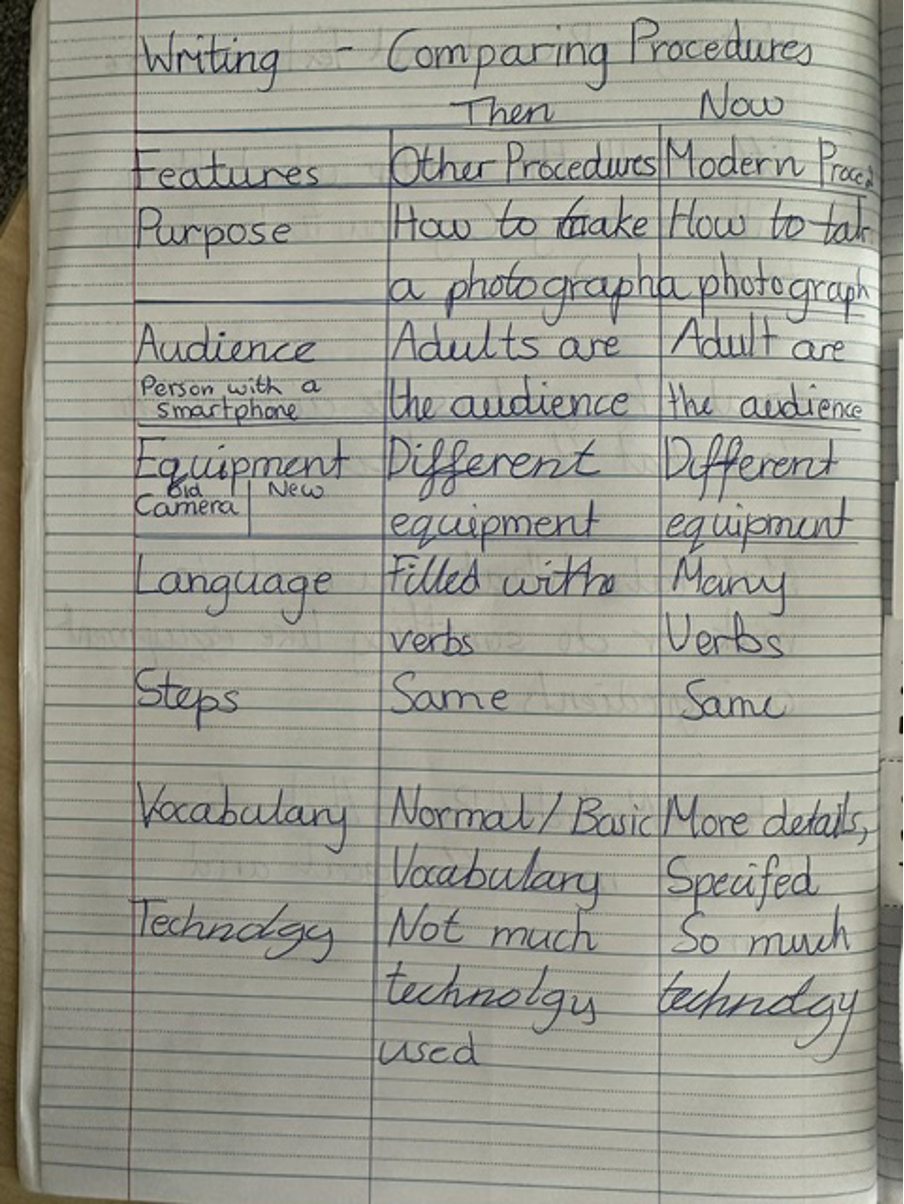 Writing - Comparing Procedures
Then Now
Features Other Procedures Modern Proced
Purpose How to take How to tak
a photograph a photograph
Audience Adults are Adult are
Person with a
smartphone the audience the audience
Equipment Different Different
Old New
Camera
equipment equipment
Language Filled with Many
verbs Verbs
Steps Same Same
Vocabulary Normal / Basic More details,
Vocabulary Specifed
Technolgy Not much So much
technolgy technolgy
used